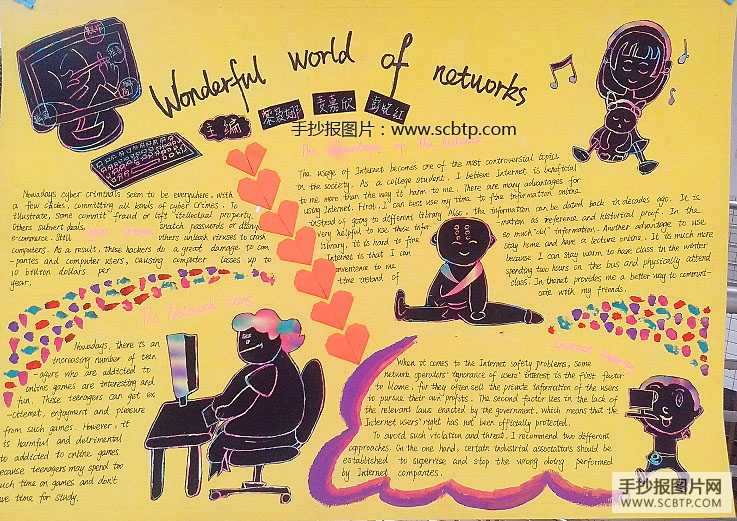 Wonderful world of networks
主编
手抄报图片：www.scbtp.com
The advantages of the
The usage of Internet becomes one of the most controversial topics
in the society. As a college student, I believe Internet is beneficial
to me more than the way it harm to me. There are many advantages for
using Internet. First, I can best use my time to fine information online
instead is going to different library. Also, the information can be dated back in decades ago. It is
very helpful to use those infor -mation as reference and historical proof. In the
library, it is hard to fine so much "old" information. Another advantage to use
Internet is that I can stay home and have a lecture online. It is much more
because I can stay warm to have class in the winter
time instead of spending two hours on the bus and physically attend
class. Internet provides me a better way to communi-
cate with my friends.
Nowadays cyber criminals seem to be everywhere, with
a few clicks, committing all kinds of cyber crimes. To
illustrate, some commit fraud or left intellectual property.
Others subvert deals, snatch passwords or disrupt
e-commerce. Still others unleash viruses to crash
computers. As a result, these hackers do a great damage to com
-panies and computer users, causing computer losses up to
10 billion dollars per
year.
The Network cons
Nowadays, there is an
increasing number of teen
-agers who are addicted to
online games are interesting and
fun. These teenagers can get ex
-citement, enjoyment and pleasure
from such games. However, it
is harmful and detrimental
to addicted to online games
because teenagers may spend too
much time on games and don't
have time for study.
Internet
When it comes to the Internet safety problems, some
network operators' ignorance of users' interest is the first factor
to blame, for they often sell the private information of the users
to pursue their own profits. The second factor lies in the lack of
the relevant laws enacted by the government, which means that the
Internet users' right has not been officially protected.
To avoid such violation and threat, I recommend two different
approaches. On the one hand, certain industrial associations should be
established to supervise and stop the wrong doing performed
by Internet companies.
手抄报图片网
WWW.SCBTP.COM